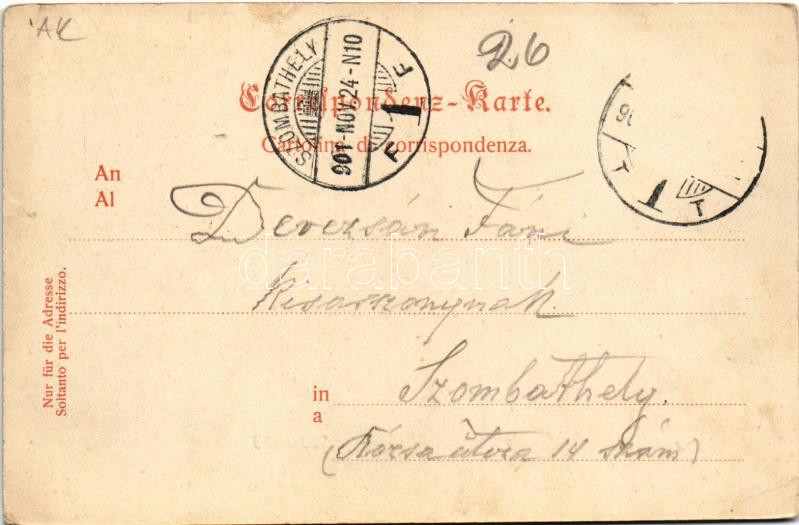 AK
26
SZOMBATHELY
901-NOV.24-N10
F 1 F
Correspondenz-Karte.
Cartolina di corrispondenza.
90
T 1 T
An
Al
Deverszán Fáni
Kisasszonynak
in
a
Szombathely.
(Rózsa útcza 14 szám)
Nur für die Adresse
Soltanto per l'indirizzo.
darabanth